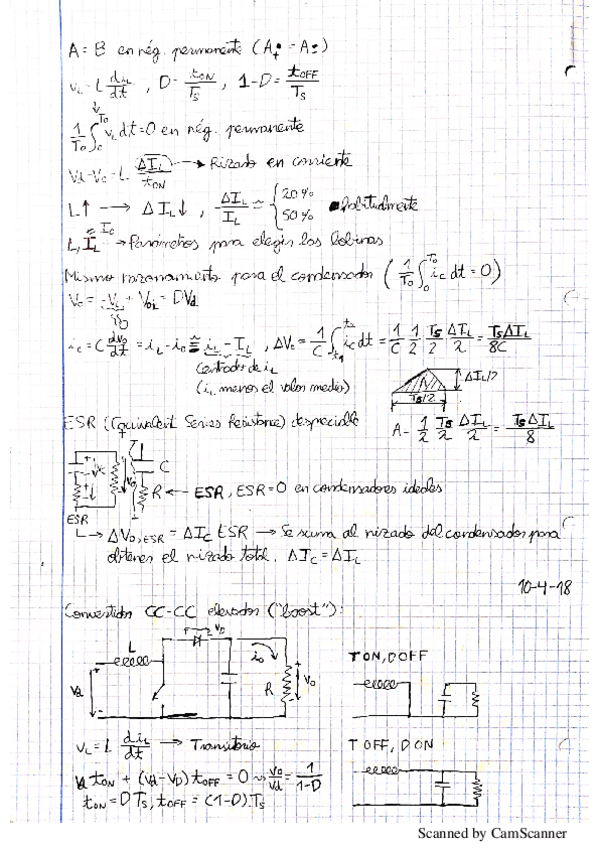 A = B en rég. permanente (A₊ = A₌)
v_L = L di_L/dt, D = t_ON/T_S, 1-D = t_OFF/T_S
1/T₀ ∫₀^T₀ v_L dt = 0 en rég. permanente
Vd-V₀ = L ΔI_L/t_ON → Rizado en corriente
L↑ → ΔI_L↓, ΔI_L/I_L ≈ { 20% 50% habitualmente
L, I_L → Parámetros para elegir las bobinas
Mismo razonamiento para el condensador (1/T₀ ∫₀^T₀ i_c dt = 0)
= DVd
i_c = C dv₀/dt = i_L - i₀ ≅ i_L - I_L, ΔV₀ = 1/C ∫ i_c dt = 1/C 1/2 T_S/2 ΔI_L/2 = T_SΔI_L/8C
(i_L menos el valor medio)
ΔI_L/2
T_S/2
A = 1/2 T_S/2 ΔI_L/2 = T_SΔI_L/8
ESR (Equivalent Series Resistance) despreciable
C
R ← ESR, ESR=0 en condensadores ideales
ESR
↳ ΔV₀,ESR = ΔI_C ESR → Se suma al rizado del condensador para
obtener el rizado total. ΔI_C = ΔI_L
10-4-18
Convertidor CC-CC elevador ("boost"):
L
V_D
i₀
Vd
R
V₀
T ON, D OFF
T OFF, D ON
v_L = L di_L/dt → Transitorio
Vd t_ON + (Vd-V₀) t_OFF = 0 → V₀/Vd = 1/(1-D)
t_ON = DT_S, t_OFF = (1-D)·T_S
Scanned by CamScanner